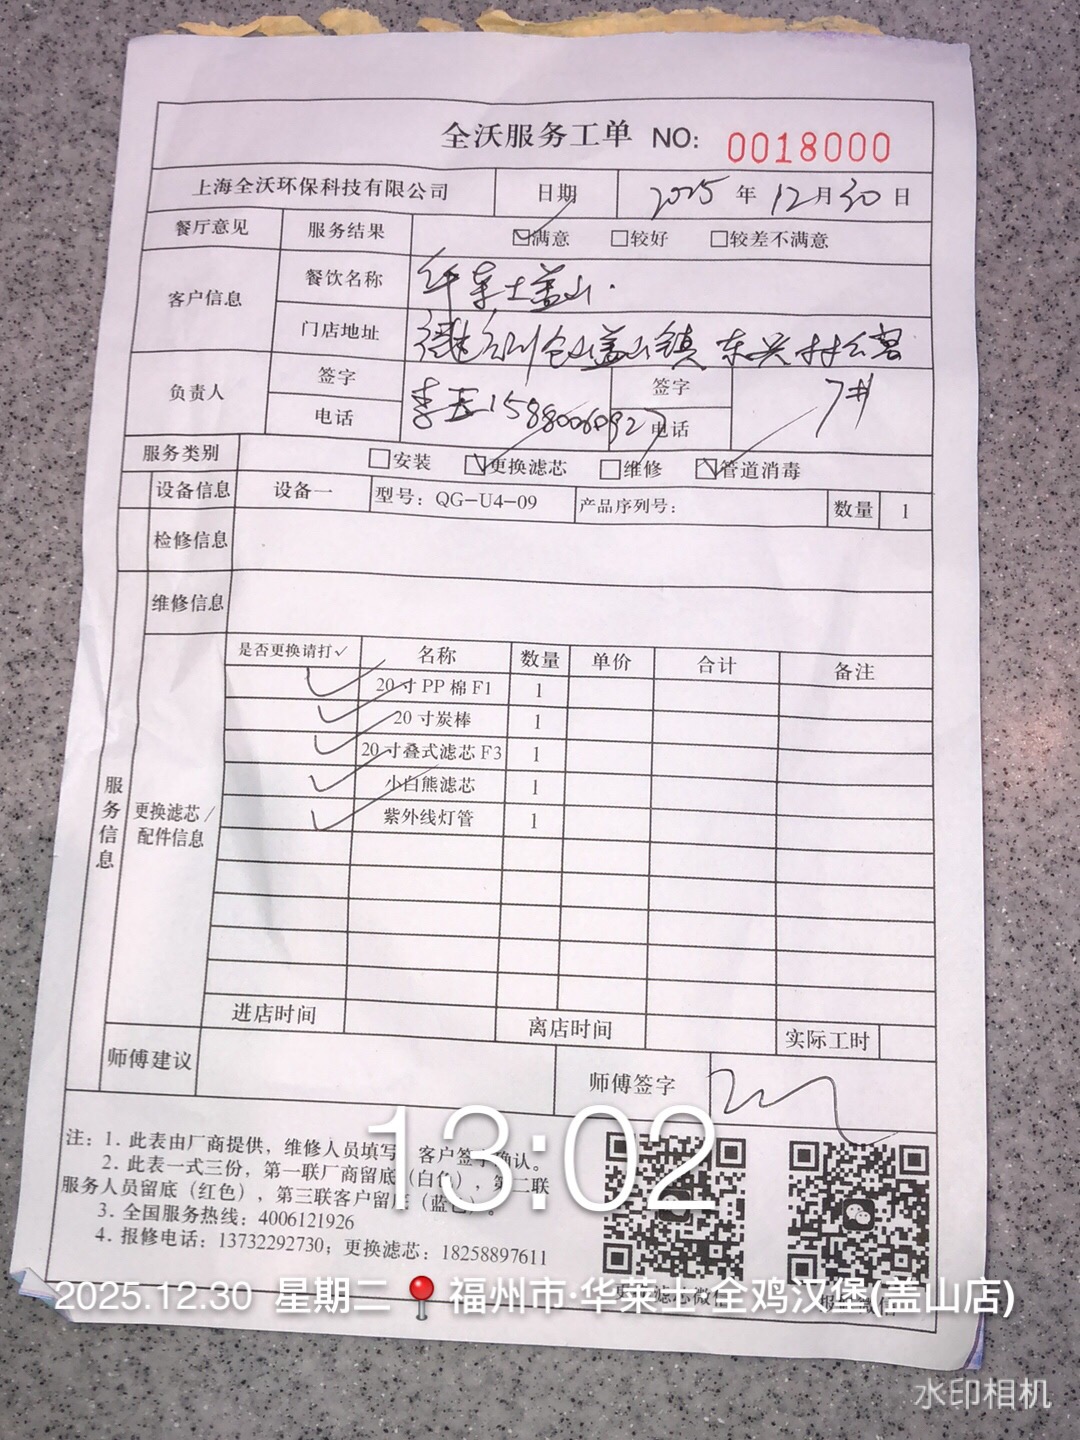 全沃服务工单 NO: 0018000
上海全沃环保科技有限公司 日期 2025 年 12 月 30 日
餐厅意见 服务结果 ☑满意 □较好 □较差不满意
客户信息 餐饮名称 华莱士盖山
门店地址 福州仓山盖山镇 东兴村
7#
负责人 签字 李 签字
电话 15880060927 电话
服务类别 □安装 ☑更换滤芯 □维修 ☑管道消毒
设备信息 设备一 型号: QG-U4-09 产品序列号: 数量 1
检修信息
维修信息
服务信息
更换滤芯/配件信息
是否更换请打✓ 名称 数量 单价 合计 备注
✓ 20寸PP棉F1 1
✓ 20寸炭棒 1
✓ 20寸叠式滤芯F3 1
✓ 小白熊滤芯 1
✓ 紫外线灯管 1
进店时间 离店时间 实际工时
师傅建议 师傅签字
注: 1. 此表由厂商提供, 维修人员填写, 客户签字确认。
2. 此表一式三份, 第一联厂商留底(白色), 第二联
服务人员留底(红色), 第三联客户留底(蓝色)。
3. 全国服务热线: 4006121926
4. 报修电话: 13732292730; 更换滤芯: 18258897611
更换滤芯微信 报修微信
13:02
2025.12.30 星期二 福州市·华莱士·全鸡汉堡(盖山店)
水印相机